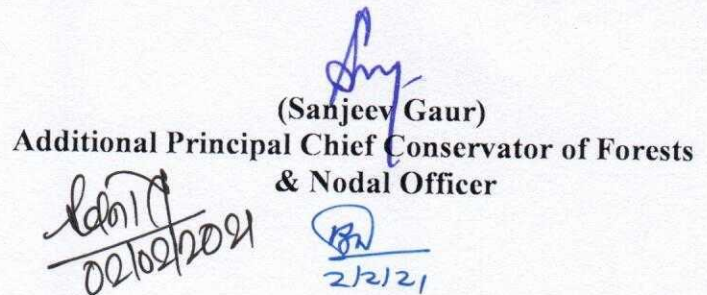 (Sanjeev Gaur)
Additional Principal Chief Conservator of Forests
& Nodal Officer
02/02/2021
2/2/21